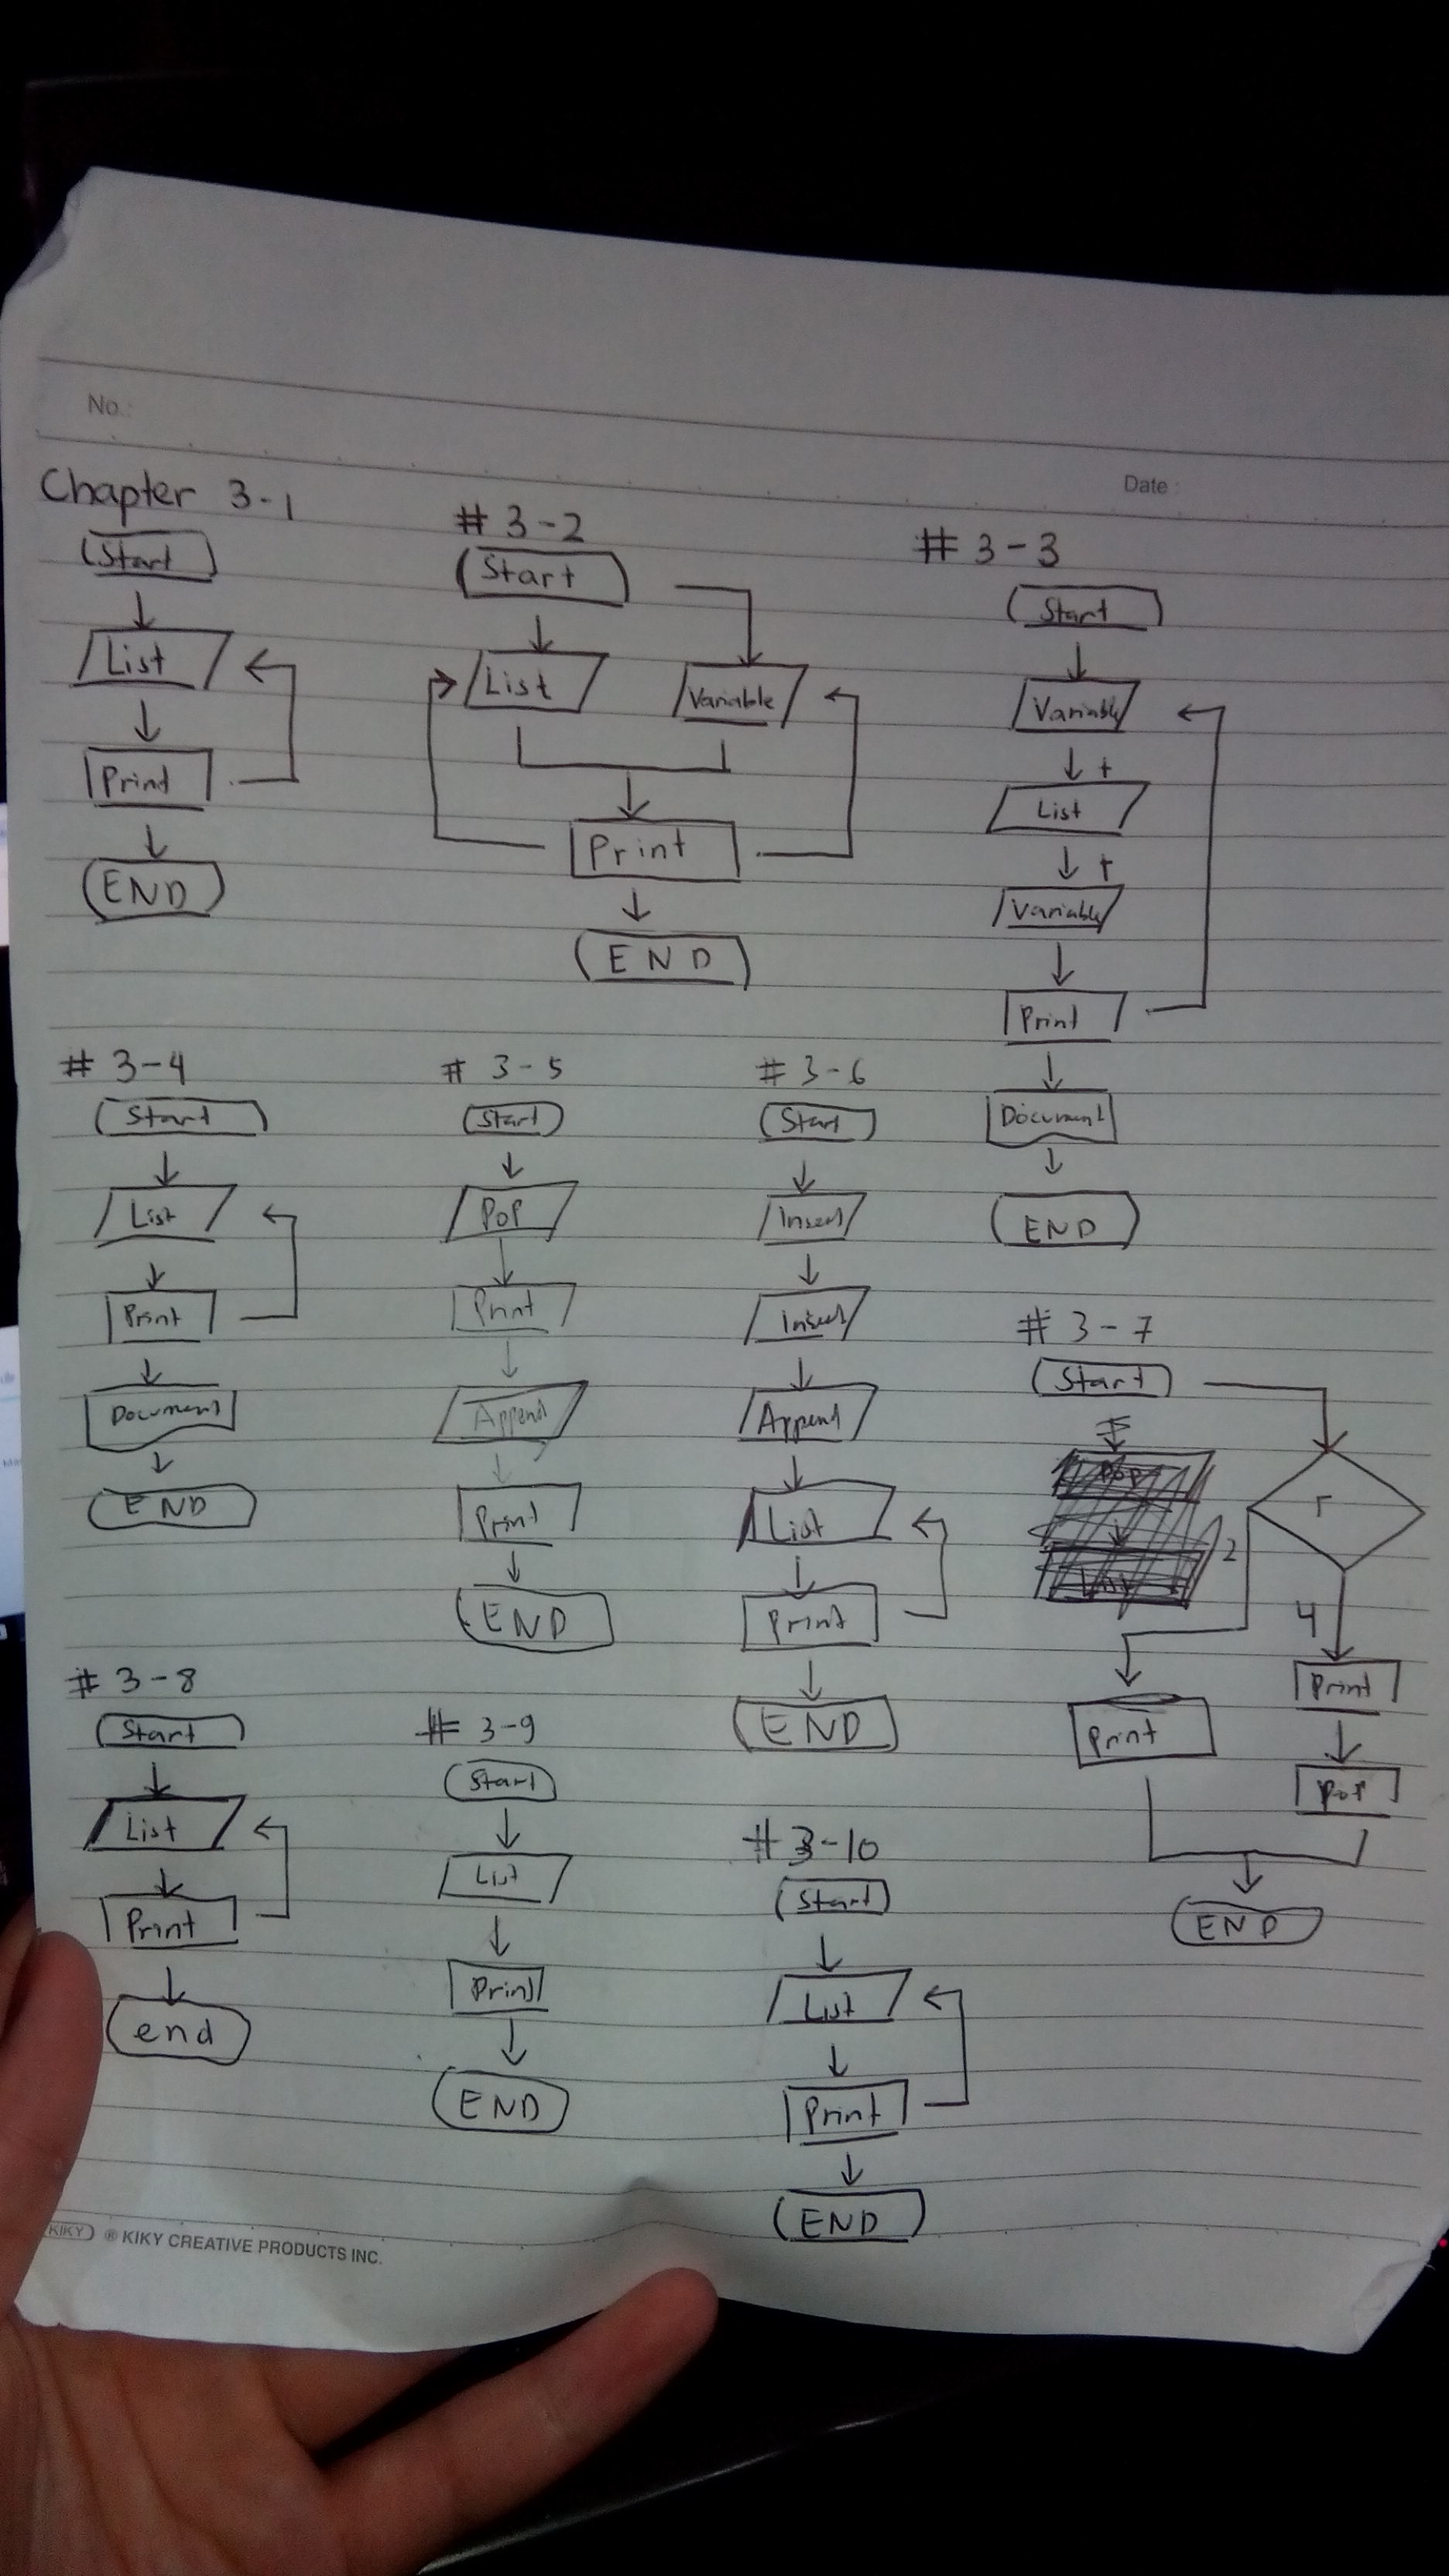 No.:
Date :
Chapter 3-1
Start
List
Print
END
# 3-2
Start
List
Variable
Print
END
# 3-3
Start
Variable
+
List
+
Variable
Print
Document
END
# 3-4
Start
List
Print
Document
END
# 3-5
Start
POP
Print
Append
Print
END
# 3-6
Start
Insert
Insert
Append
List
Print
END
# 3-7
Start
2
4
Print
Print
Pop
END
# 3-8
Start
List
Print
end
# 3-9
Start
List
Print
END
# 3-10
Start
List
Print
END
KIKY ® KIKY CREATIVE PRODUCTS INC.